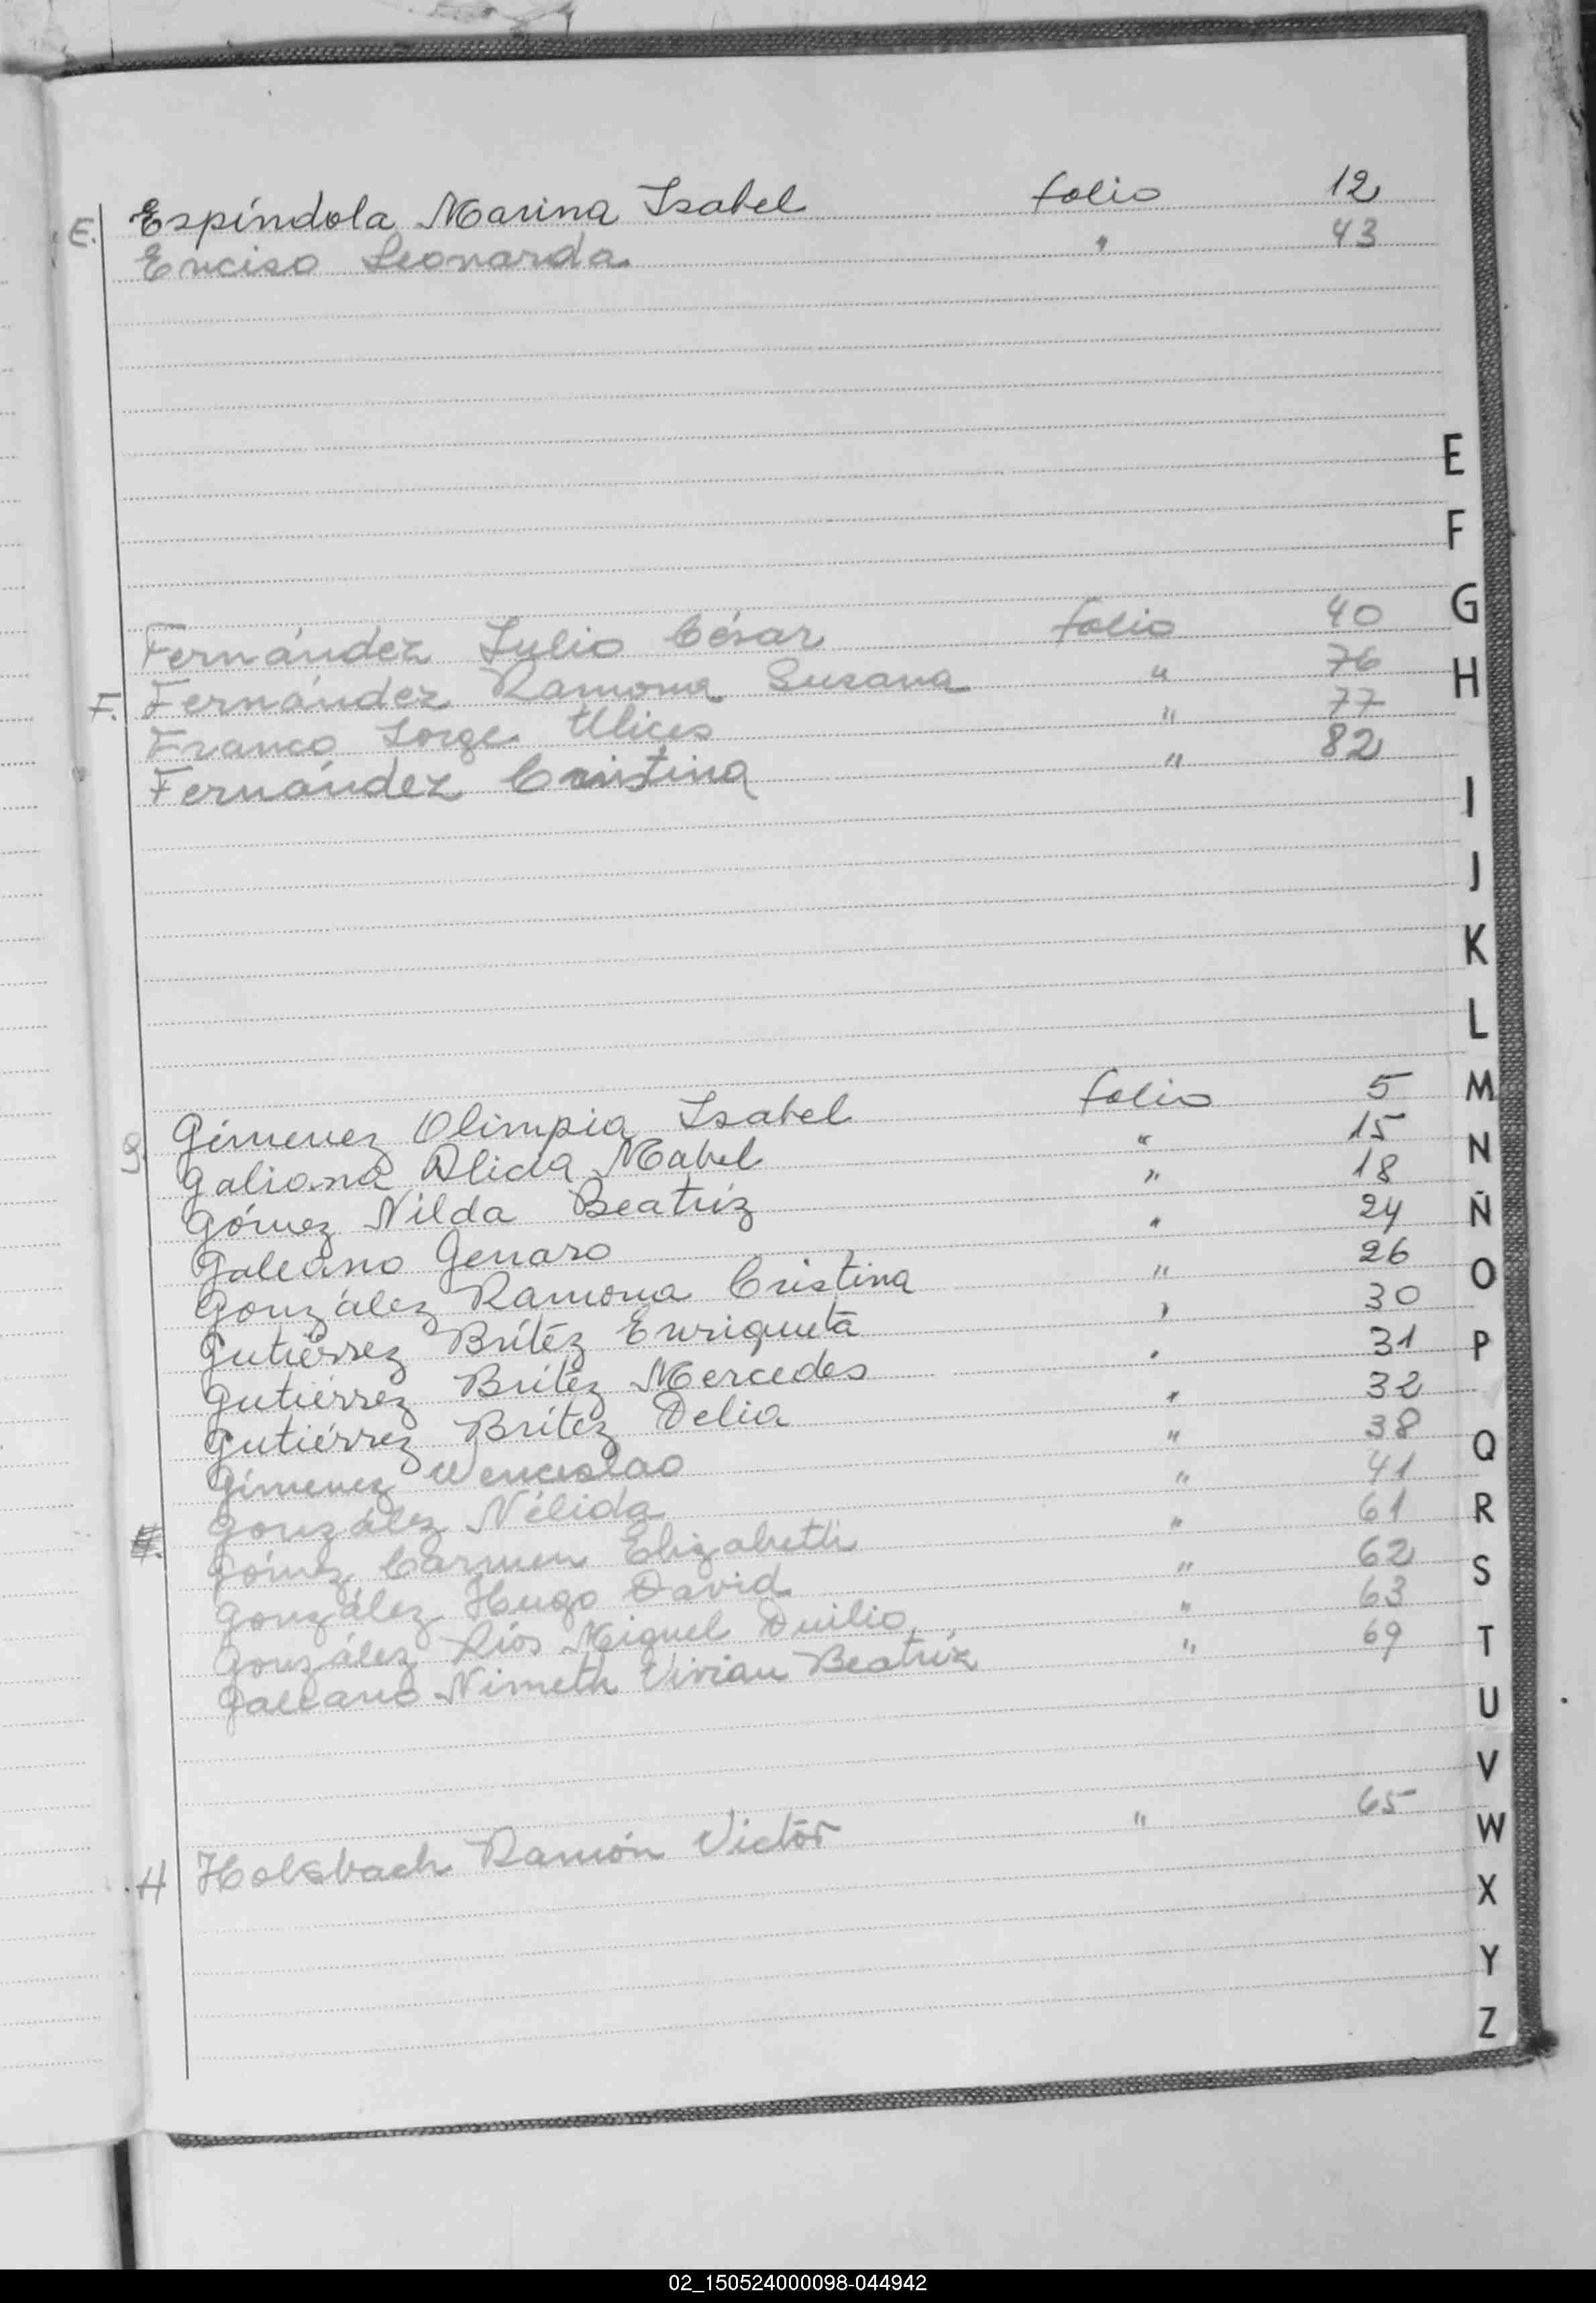 E. Espíndola Marina Isabel folio 12
Enciso Leonarda " 43
E
F
G
H
I
J
K
L
M
N
Ñ
O
P
Q
R
S
T
U
V
W
X
Y
Z
Fernández Julio César folio 40
F. Fernández Ramona Susana " 76
Franco Jorge Ulices " 77
Fernández Cristina " 82
G. Gímenez Olimpia Isabel folio 5
Galiana Alicia Mabel " 15
Gómez Nilda Beatríz " 18
Galeano Genaro " 24
González Ramona Cristina " 26
Gutiérrez Brítez Enriqueta " 30
Gutiérrez Brítez Mercedes " 31
Gutiérrez Brítez Delia " 32
Gímenez Wenceslao " 38
González Nélida " 41
Gómez Carmen Elizabeth " 61
González Hugo David " 62
González Ríos Miguel Duilio " 63
Galeano Nimeth Vivian Beatríz " 69
H Holsbach Ramón Victor " 65
02_150524000098-044942